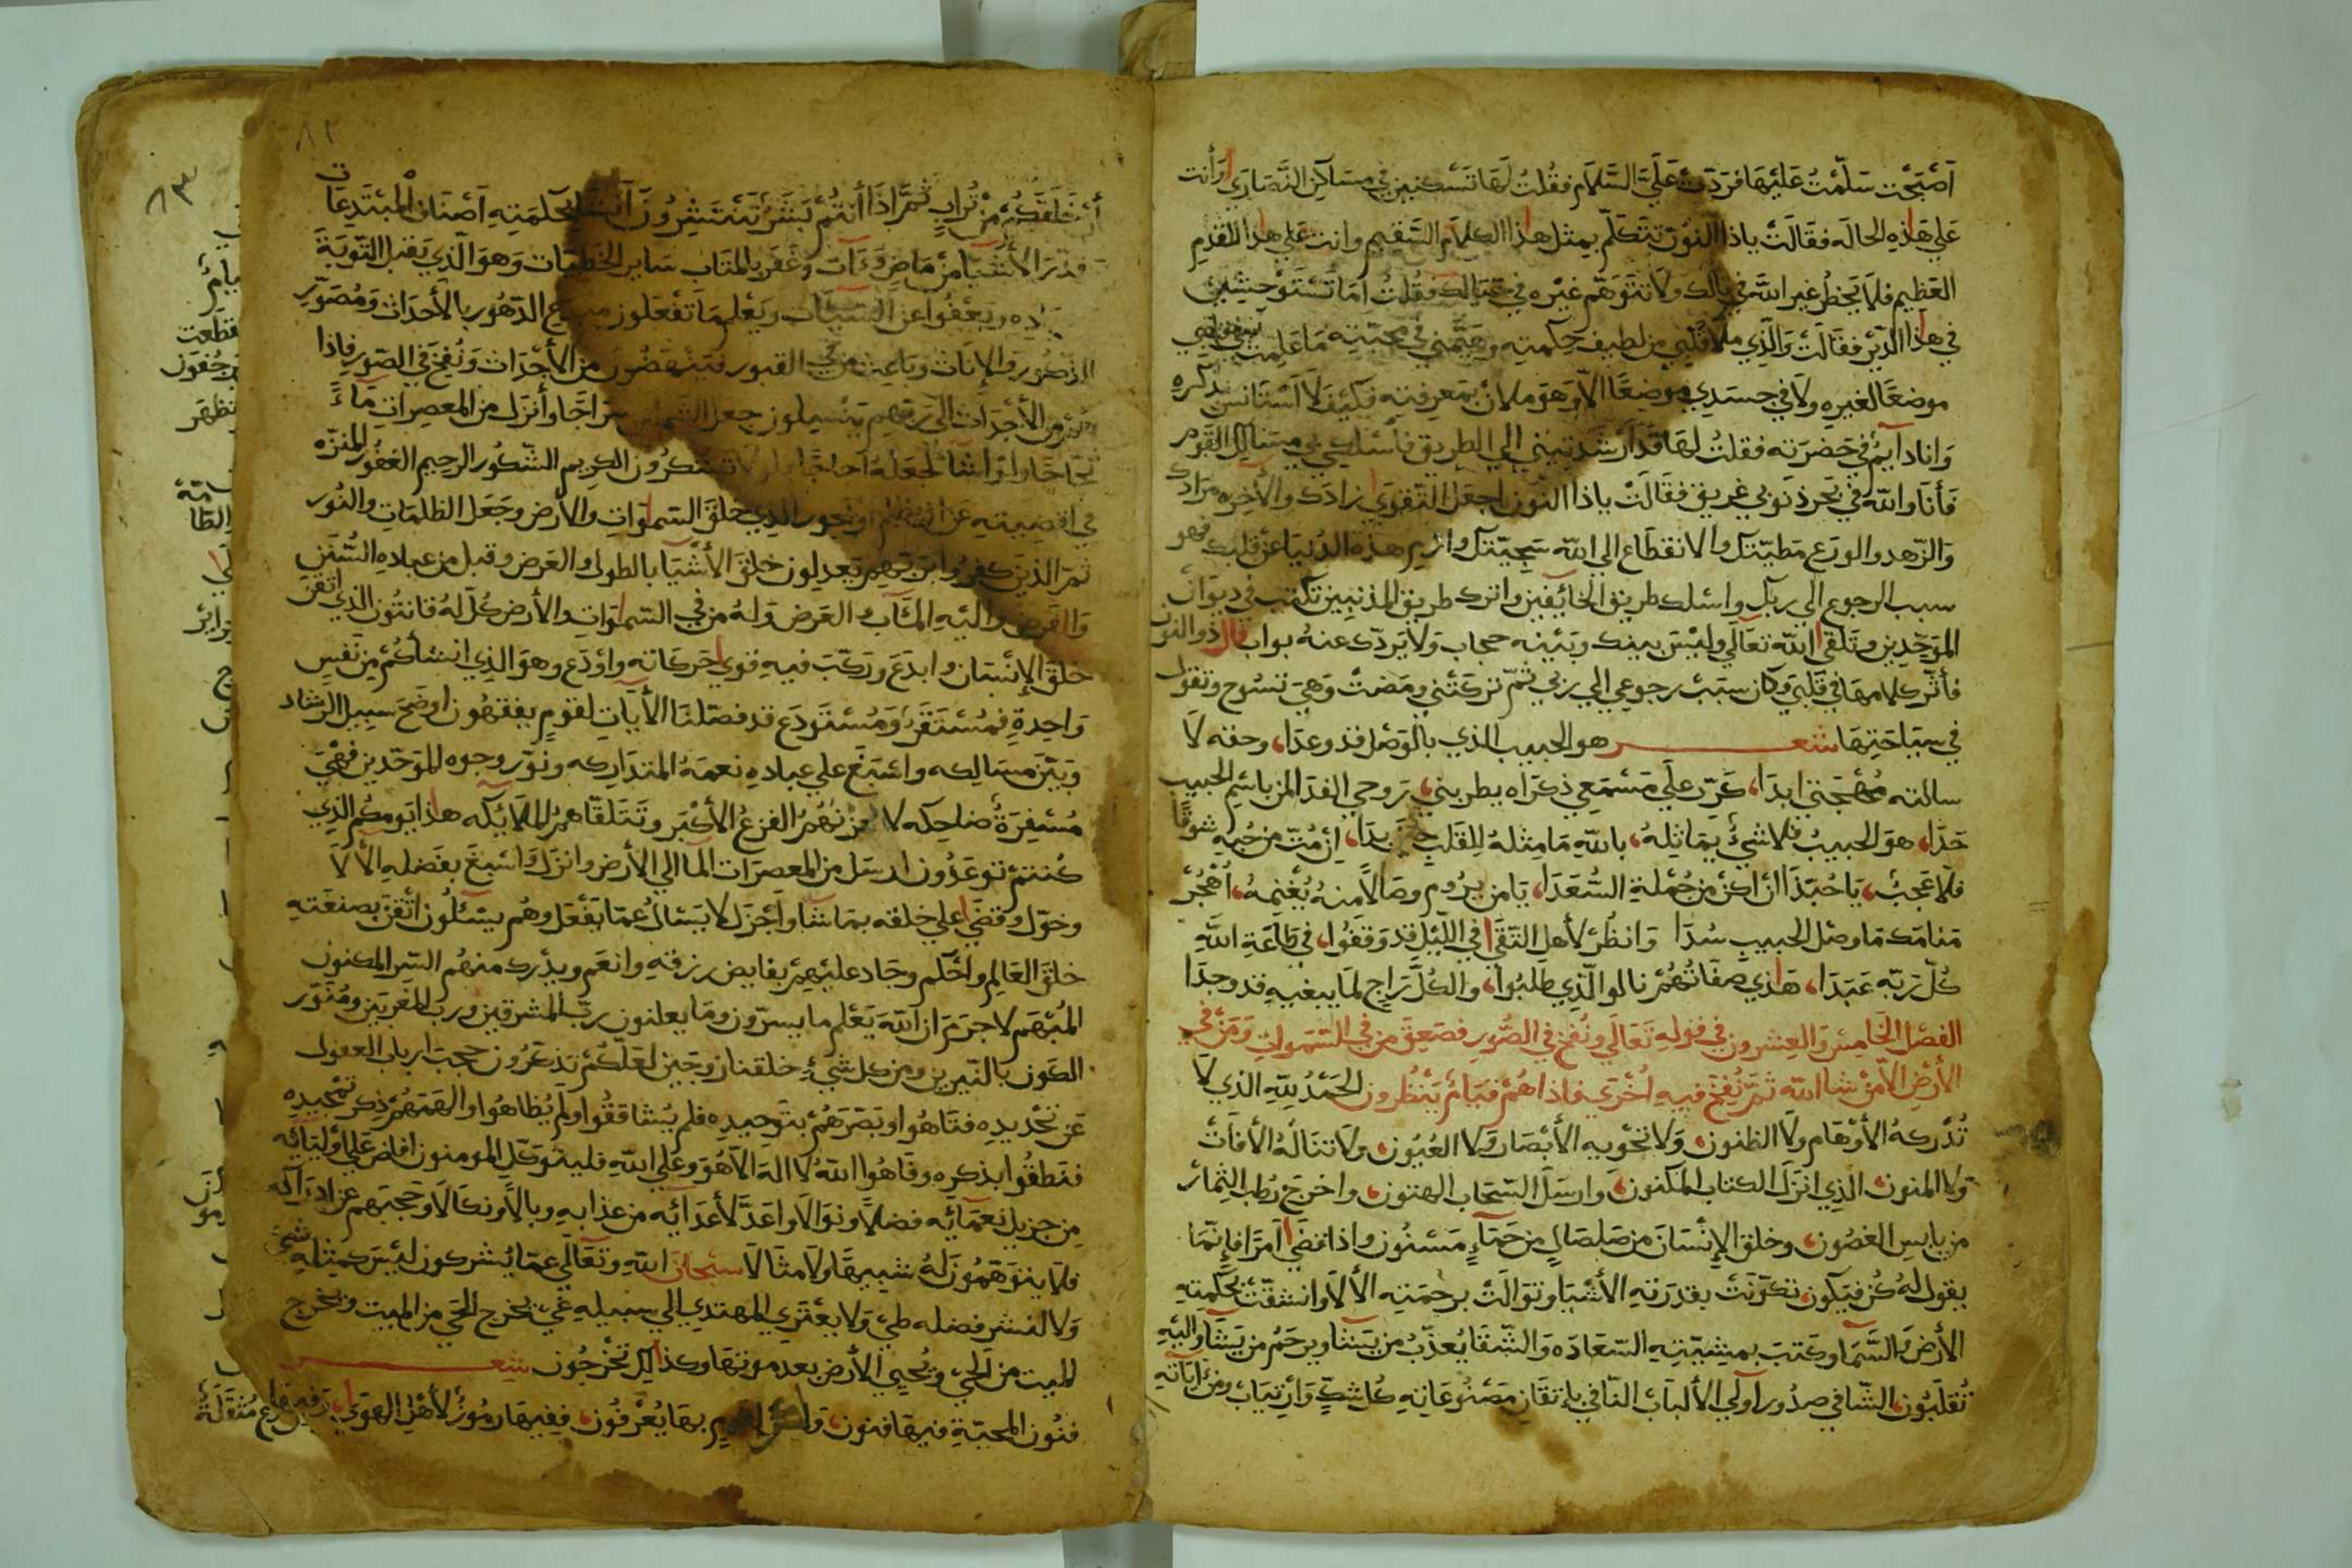 اَصْبَحْت سَلَّمْتُ عَلَيْهَا فَرَدَّتْ عَلَيَّ السَّلَام فقُلتُ لَهَا تَسْكنين في مسَاكِن النَّصَارَي وَأنت
عَلي هَذِهِ الحاله فقَالَتْ ياذا النّون تتكلّم بمثل هذا الكلام السّقيم وانت عَلي هذا المقدم
العَظيم فلَا يَخطُر غير الله في بالك ولَا تتوَهّم غيْره في فقُلتُ اَمَا تَسْتَوْحِشين
في هذا الدّيْر فقَالَتْ وَالَّذِي ملَا قَلبي من لطيف حِكمته وهَيَّمَني في مَحبّته مَا عَلِمت في قلبي
موضعًا لغيرِه ولَا في جسَدي موضِعًا الّا وَهوَ ملان بمَعرفته فكيْف لَا اَسْتَانس بذكره
وَانا دَايمٌ في حَضرَته فقلتُ لهَا قَد اَرْشَدتيني الي الطريق فاسْلكي بي مسَالك القَوم
فَأنَا وَالله في بحر ذنوبي غريق فقَالَتْ ياذا النّون اجعَل التّقوَي زادَك والأخِره مرَادك
وَالزّهد والورَع مَطيّتك والانقطَاع الي الله سَجيّتك وارم هذه الدُنيَا عَن قلبك فهو
سبب الرجوع الي ربك واسْلك طريق الخائفين واترك طريق المذنبين تكتب في ديوَان
الموَحّدِين وتَلقي الله تعَالي وليْسَ بينك وبَيْنه حجاب وَلا يَردّك عنهُ بواب قال ذو النون
فأثّر كلامهَا في قَلبي وكَان سبَبْ رجوعي الي ربي ثمّ تركَتْني ومَضَتْ وَهيَ تسُوح وتقول
في سيَاحَتِهَا شعر هو الحبيب الذي بالوَصْل قد وعدَا، وحقه لَا
سالته مُهْجَتي ابدَا، كَرّر علَي مَسْمَعي ذكراه يطربني، رَوحي الفدَا لمن باسْم الحبيب
حَدَا، هوَ الحبيبُ فلا شيْءٌ يمَاثِلهُ، باللهِ مَا مِثلهُ لِلقَلب بدَا، اِن مُتّ مِن حُبه شوقًا
فلَا عَجبٌ، يَا حُبّذَا انْ اكُنْ مِن جُمْلةِ السُّعَدَا، يَا من يرُوم وصَالًا منهُ يُغْنِمهُ، اُهْجُرْ
مَنامَك مَا وصْل الحبيبِ سُدَا وَانظُرْ لأهل التّقَي في اللّيْل قد وَقفُوا، في طاعَةِ اللهِ
كُلّ رَبّه عَبَدَا، هَذي صِفَاتُهُمْ نالوا الّذي طَلبُوا، والكُلّ رَاجٍ لمَا يبغيهِ قد وجدَا
الفصْل الخَامِسْ وَالعِشرون في قولهِ تعَالَي ونُفخ في الصُّورِ فصَعِقَ من في السّمَوات وَمَنْ في
الأرْضِ الّا مَنْ شا الله ثمّ نُفِخَ فيهِ اُخْرَي فاذا هُمْ قيَامٌ يَنْظُرون الحَمْدُ للهِ الذي لَا
تُدْركهُ الأوْهَام ولَا الظنون، وَلَا تحْوِيهِ الأبْصَار ولَا العُيُون، ولَا تنَالُهُ الأفَاتُ
وَلا المنون، الّذِي اَنزَلَ الكتابَ المكنون، وارسَلَ السّحَاب الهتون، واخرَجَ رُطب الثِمار
من يابسِ الغصُون، وخلق الإنْسَانَ من صَلصَالٍ من حَمَاءٍ مَسْنُون واذا قضَي اَمرًا فإنّمَا
يقول لهُ كُن فيَكون، تكَوّنَتْ بقدرَتهِ الأشيَا وتوَالَتْ برحمَتِه الألَا وانشقّتْ بحكمتهِ
الأرْضُ وَالسَّمَا وكَتبَ بمشِيّتهِ السّعَادَه وَالشّقَا يُعذّبُ من يَشَا ويَرحَمُ من يَشَا وَاليهِ
تُقلَبُون، الشّافي صدُور اُولي الألبَاب النّافي بإتقَان مَصْنوعَاتِهِ كُل شكٍّ وَارْتيَاب ومن ايَاتِهِ
٨٢
أنْ خَلَقَكُمْ مِنْ تُرابٍ ثُمَّ اِذَا أنتُمْ بَشَرٌ تَنْتَشِرُونَ بحكمَتِهِ اَصْنَاف المْبتَدعَات
الأشيَا منْ مَاضٍ وَءَآت وغفر بالمتَاب سَاير الخَطيّات وَهوَ الّذي يَقبَل التّوبَةَ
ويَعْفُوا عن السّيّئَات ويَعْلم مَا تَفْعَلون الدّهُور بالأحدَاث وَمُصَوّر
الذكُور والإنَاث وبَاعث من في القبور فيَنهَضُون من الأجْدَاث وَنُفِخَ في الصّور فاذا
هُمْ من الأجْدَاث الي رَبّهم يَنْسِلون جعل الشّمسَ سِرَاجًا وأنزَل من المعصراتِ مَاءً
ثجّاجًا ولَوْ نشَا لجَعَلهُ اُجَاجًا فلَولَا تشكرُون الكريم الشّكُور الرحيم الغَفُور المنزّه
في اقضيَتهِ عَن الّذي خلَقَ السّموَاتِ والأرْض وجَعَل الظلمَاتِ والنُور
ثمّ الّذينَ كفرُوا برَبّهِم يَعدِلون خلقَ الأشْيَا بالطول والعَرض وقبل من عبادِه السُّنَن
وَالفَرض واليْهِ المَآب والعَرض وَلهُ من في السّموَاتِ والأرض كُلٌّ لهُ قانتُون الذي اَتقنَ
خلقَ الإنْسَان وابدَعَ ورَكّبَ فيهِ قوَي حَركاته واوْدَع وهوَ الذِي انشأكُمْ من نَفسٍ
وَاحِدةٍ فمُسْتَقَرٌّ وَمُسْتَودَع قد فصّلنَا الأيَاتِ لقومٍ يفقهُون اوضحَ سبيل الرشاد
وَبَيّنَ مسَالِكه واسْبَغ علي عبادهِ نعمَهُ المتدَاركه ونوّر وجوه الموَحّدين فهْيَ
مُسْفِرَةٌ ضَاحِكه لا يحزنهُمُ الفزعُ الأكْبَر وتَتَلقّاهمُ المَلَائكه هذا يَومُكم الّذي
كُنتمْ توعَدُون ارسَل من المعصرَات المَا الي الأرْض وانزَل وَاسْبغ بفَضلهِ الألَا
وخوّل وقضَي علي خلقه بمَا شا واَجْزَل لَا يُسْالُ عمّا يَفْعَل وهُم يسْئلُون أتْقَنَ بصنعَتهِ
خلقَ العَالم واَحْكم وجَاد علَيْهِمْ بفايض رزقهِ وانعَم ويدْرك منهُم السّر المكنون
المُبْهَم لَا جرَمَ انّ اللهَ يَعْلم ما يسرّون ومَا يعلنون ربّ المشرقين وربّ المغربين ومُنوّر
الكَون بالنّيرين ومن كل شيءٍ خلقنا زوجَين لعَلّكُمْ تذكرُون حجبَ ارباب العقول
عَن تحْديدِه فتَاهُوا وبَصّرهُمْ بتَوحيدِه فلم يُشَاققُوا ولَم يُظاهُوا والهَمَهُمْ ذكر تمْجيدِه
فنَطقُوا بذكرِه وفَاهُوا اللهُ لَا الهَ الّا هُوَ وعَلي اللهِ فليتوَكّل المومنون افاض عَلي أوْليَائه
مِن جزيل نعمَائِه فضلًا ونوَالَا واعَدّ لأعدَائِه من عذابهِ وبالًا ونكَالَا وحجبَهم عن ادرَاكه
فلَا يتوَهّمُون لَهُ شبيهًا ولَا مثَالَا سُبْحانَ اللهِ وتعَالَي عمّا يُشركون ليْسَ كمِثلهِ شيء
وَلا لنشر فضله طيّ وَلَا يعْتَري المهتدِي الي سبيلهِ غَيّ يخرج الحَي من الميت ويخرج
الميت من الحَيّ ويُحيي الأرض بعدَ موتهَا وكذلك تُخْرجُون شعر
فنُون المحبّةِ فيهَا فنون، بهَا يُعْرَفُون، ففيهَا رمُوزٌ لأهل الهَوَي،
٨٣